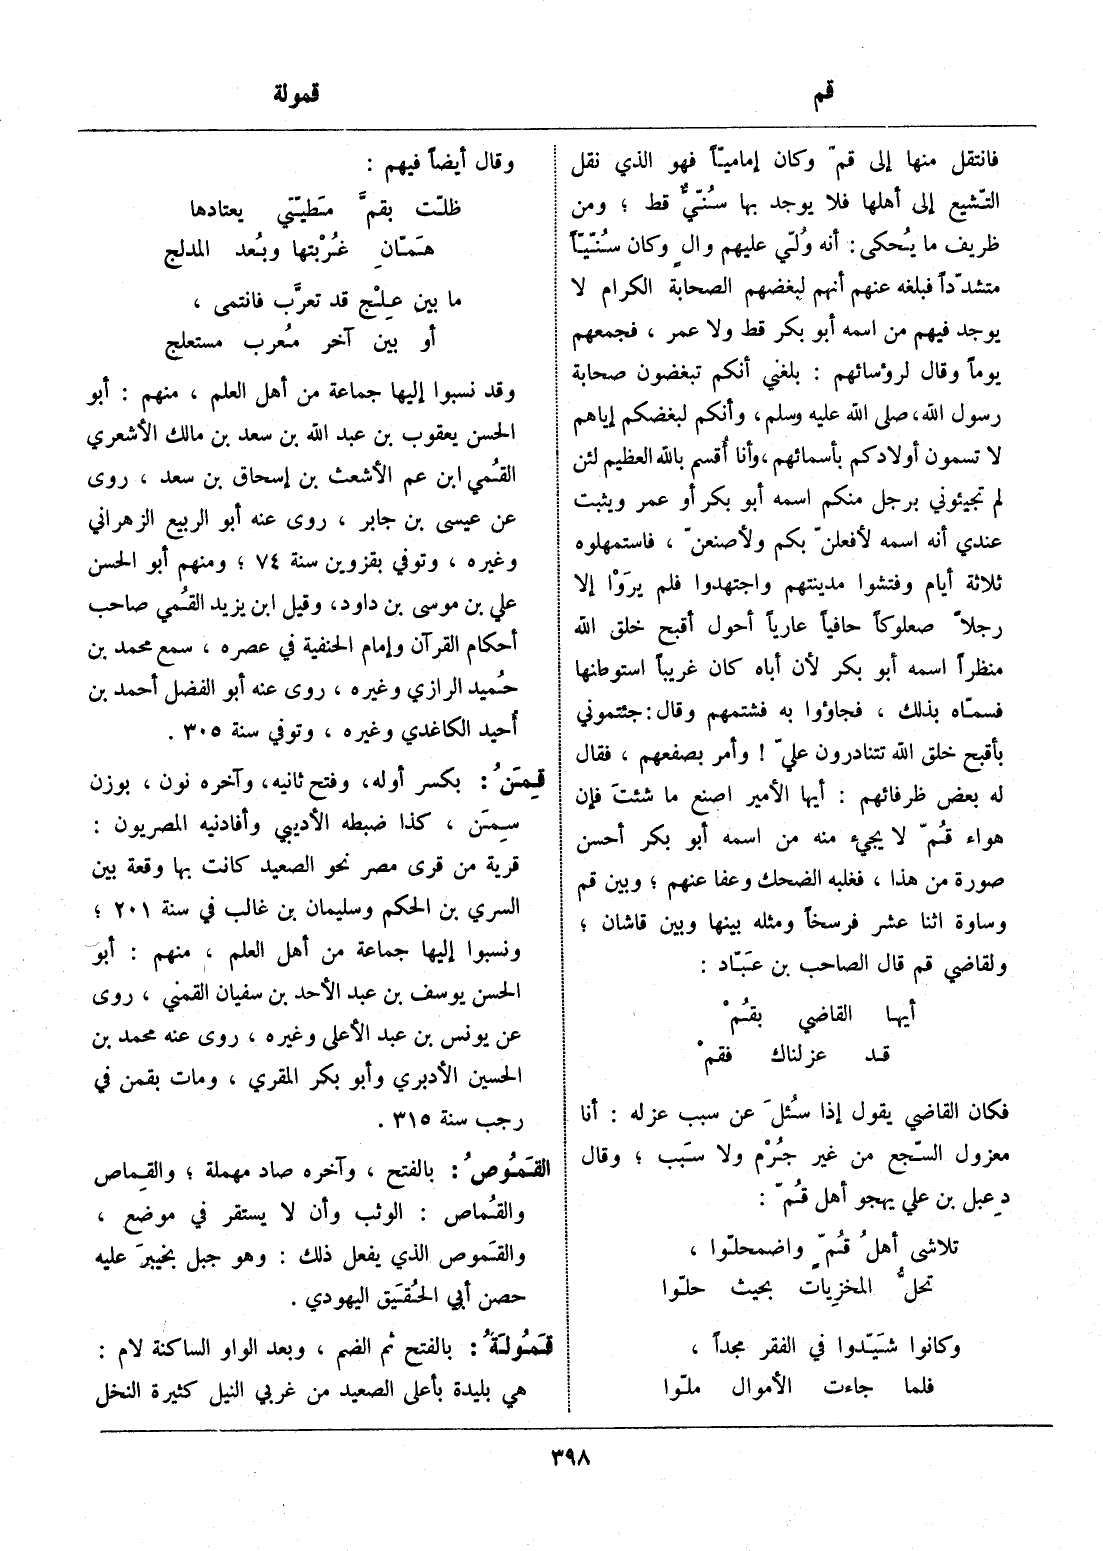 قم
قمولة
فانتقل منها إلى قمّ وكان إماميّاً فهو الذي نقل
التّشيع إلى أهلها فلا يوجد بها سُنّيٌّ قط ؛ ومن
ظريف ما يُحكى : أنه وُلّي عليهم والٍ وكان سُنّيّاً
متشدّداً فبلغه عنهم أنهم لبغضهم الصحابة الكرام لا
يوجد فيهم من اسمه أبو بكر قط ولا عمر ، فجمعهم
يوماً وقال لرؤسائهم : بلغني أنكم تبغضون صحابة
رسول الله، صلى الله عليه وسلم، وأنكم لبغضكم إياهم
لا تسمون أولادكم بأسمائهم، وأنا أُقسم بالله العظيم لئن
لم تجيئوني برجل منكم اسمه أبو بكر أو عمر ويثبت
عندي أنه اسمه لأفعلنّ بكم ولأصنعنّ ، فاستمهلوه
ثلاثة أيام وفتشوا مدينتهم واجتهدوا فلم يرَوْا إلا
رجلاً صعلوكاً حافياً عارياً أحول أقبح خلق الله
منظراً اسمه أبو بكر لأن أباه كان غريباً استوطنها
فسمّاه بذلك ، فجاؤوا به فشتمهم وقال : جئتموني
بأقبح خلق الله تتنادرون عليّ ! وأمر بصفعهم ، فقال
له بعض ظرفائهم : أيها الأمير اصنع ما شئتَ فإن
هواء قُمّ لا يجيء منه من اسمه أبو بكر أحسن
صورة من هذا ، فغلبه الضحك وعفا عنهم ؛ وبين قم
وساوة اثنا عشر فرسخاً ومثله بينها وبين قاشان ؛
ولقاضي قم قال الصاحب بن عبّاد :
أيها القاضي بقُمْ
قد عزلناك فقمْ
فكان القاضي يقول إذا سُئلَ عن سبب عزله : أنا
معزول السّجع من غير جُرْم ولا سبَب ؛ وقال
دِعبل بن علي يهجو أهل قُمّ :
تلاشى أهلُ قُمّ واضمحلّوا ،
تحلُّ المخزيات بحيث حلّوا
وكانوا شيّدوا في الفقر مجداً ،
فلما جاءت الأموال ملّوا
وقال أيضاً فيهم :
ظلّت بقمَّ مطيّتي يعتادها
همّانِ غُرْبتها وبُعد المدلج
ما بين عِلْج قد تعرَّب فانتمى ،
أو بين آخر مُعرب مستعلج
وقد نسبوا إليها جماعة من أهل العلم ، منهم : أبو
الحسن يعقوب بن عبد الله بن سعد بن مالك الأشعري
القُمي ابن عم الأشعث بن إسحاق بن سعد ، روى
عن عيسى بن جابر ، روى عنه أبو الربيع الزهراني
وغيره ، وتوفي بقزوين سنة ٧٤ ؛ ومنهم أبو الحسن
علي بن موسى بن داود، وقيل ابن يزيد القُمي صاحب
أحكام القرآن وإمام الحنفية في عصره ، سمع محمد بن
حُميد الرازي وغيره ، روى عنه أبو الفضل أحمد بن
أُحيد الكاغدي وغيره ، وتوفي سنة ٣٠٥ .
قِمَنُ : بكسر أوله، وفتح ثانيه، وآخره نون ، بوزن
سِمَن ، كذا ضبطه الأديبي وأفادنيه المصريون :
قرية من قرى مصر نحو الصعيد كانت بها وقعة بين
السري بن الحكم وسليمان بن غالب في سنة ٢٠١ ؛
ونسبوا إليها جماعة من أهل العلم ، منهم : أبو
الحسن يوسف بن عبد الأحد بن سفيان القمني ، روى
عن يونس بن عبد الأعلى وغيره ، روى عنه محمد بن
الحسين الأدبري وأبو بكر المقري ، ومات بقمن في
رجب سنة ٣١٥ .
القَمُوصُ : بالفتح ، وآخره صاد مهملة ؛ والقِماص
والقُماص : الوثب وأن لا يستقر في موضع ،
والقَموص الذي يفعل ذلك : وهو جبل بخيبرَ عليه
حصن أبي الحُقيَق اليهودي .
قَمُولَةُ : بالفتح ثم الضم ، وبعد الواو الساكنة لام :
هي بليدة بأعلى الصعيد من غربي النيل كثيرة النخل
٣٩٨